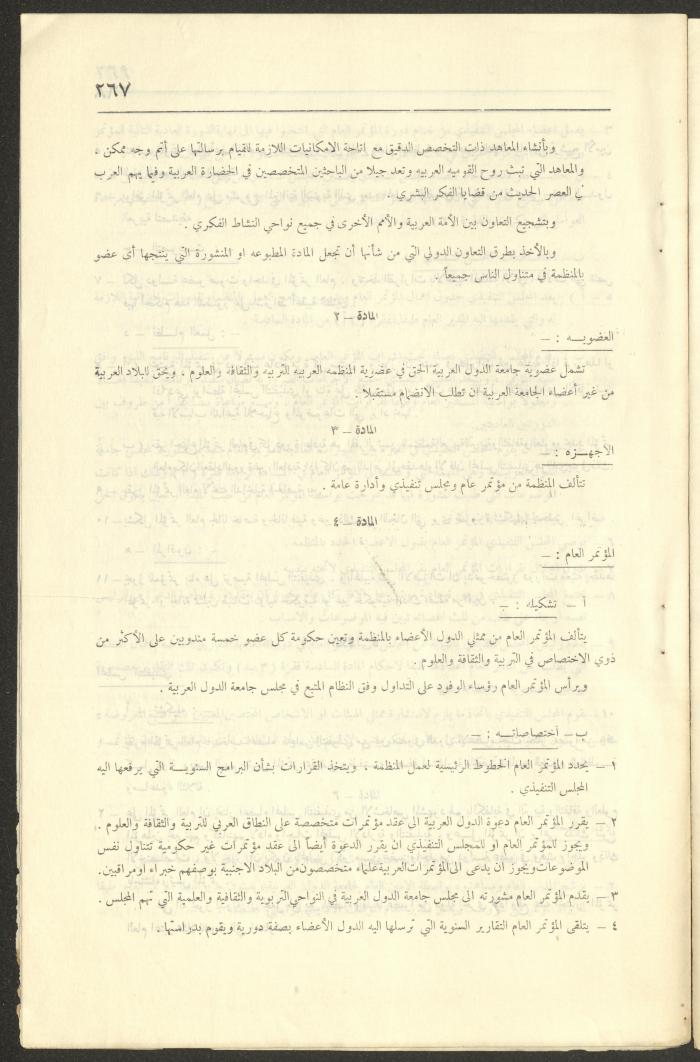 ٢٦٧
وبأنشاء المعاهد ذات التخصص الدقيق مع اتاحة الامكانيات اللازمة للقيام برسالتها على أتم وجه ممكن ،
والمعاهد التي تبث روح القوميه العربيه وتعد جيلا من الباحثين المتخصصين في الحضارة العربية وفيما يهم العرب
في العصر الحديث من قضايا الفكر البشري .
وبتشجيع التعاون بين الأمة العربية والأمم الأخرى في جميع نواحي النشاط الفكري .
وبالأخذ بطرق التعاون الدولي التي من شأنها أن تجعل المادة المطبوعه او المنشورة التي ينتجها أى عضو
بالمنظمة في متناول الناس جميعاً .
المادة – ٢
العضويــه : –
تشمل عضوية جامعة الدول العربية الحق في عضوية المنظمه العربيه للتربيه والثقافة والعلوم . ويحق للبلاد العربية
من غير أعضاء الجامعة العربية ان تطلب الانضمام مستقبلاً .
المادة – ٣
الأجهــزه : –
تتألف المنظمة من مؤتمر عام ومجلس تنفيذي وأدارة عامة .
المادة – ٤
المؤتمر العام : –
أ – تشكيله : –
يتألف المؤتمر العام من ممثلي الدول الأعضاء بالمنظمة وتعين حكومة كل عضو خمسة مندوبين على الأكثر من
ذوي الاختصاص في التربية والثقافة والعلوم .
ويرأس المؤتمر العام رؤساء الوفود على التداول وفق النظام المتبع في مجلس جامعة الدول العربية .
ب – أختصاصاتــه : –
١ – يحدد المؤتمر العام الخطوط الرئيسية لعمل المنظمة . ويتخذ القرارات بشأن البرامج السنويــة التي يرفعها اليه
المجلس التنفيذي .
٢ – يقرر المؤتمر العام دعوة الدول العربية الى عقد مؤتمرات متخصصة على النطاق العربي للتربية والثقافة والعلوم .
ويجوز للمؤتمر العام او للمجلس التنفيذي ان يقرر الدعوة أيضاً الى عقد مؤتمرات غير حكومية تتناول نفس
الموضوعات ويجوز ان يدعى الى المؤتمرات العربية علماء متخصصون من البلاد الاجنبية بوصفهم خبراء او مراقبين.
٣ – يقدم المؤتمر العام مشورته الى مجلس جامعة الدول العربية في النواحي التربوية والثقافية والعلمية التي تهم المجلس .
٤ – يتلقى المؤتمر العام التقارير السنوية التي ترسلها اليه الدول الأعضاء بصفة دورية ويقوم بدراستها .